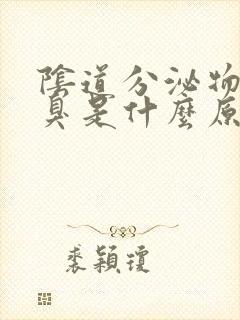 陰道分泌物
臭是什麼原
裘穎瓊